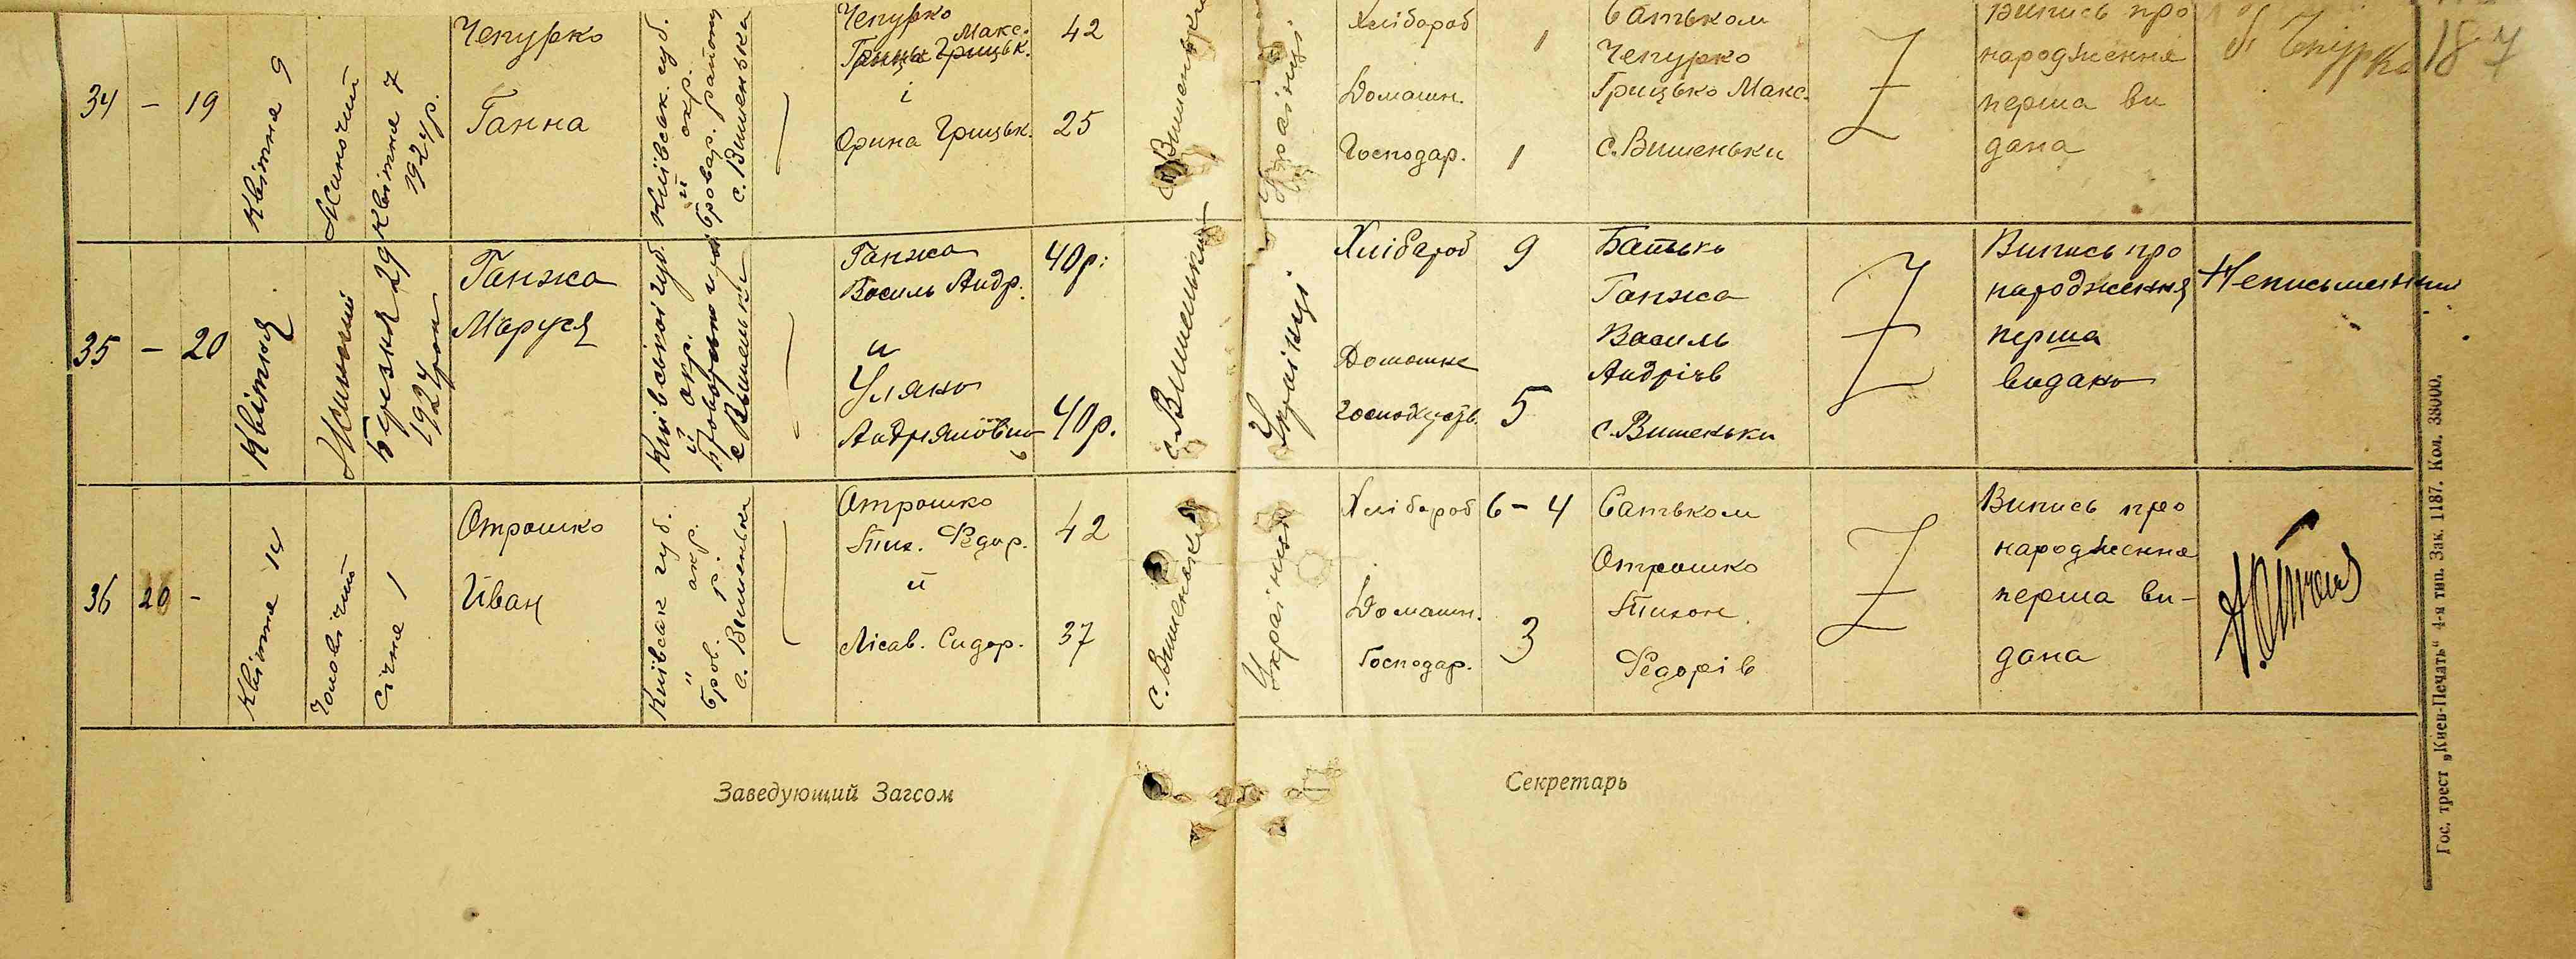 34 - 19
Квітня 9
Жиночий
Квітня 7
1924 р.
Чепурко
Ганна
Київськ. губ.
" окр.
Бровар. району
с. Вишенька
Чепурко
Макс.
Грицьк.
і
Орина Грицьк.
42
25
с. Вишеньки
Українці.
Хлібороб
Домашн.
Господар.
1
1
батьком
Чепурко
Грицько Макс.
с. Вишеньки
Z
Випись про
народження
перша ви
дана
Чепурко
35 - 20
Квітня
Жиночий
Березня 29
1924 року
Ганжа
Маруся
Київської губ.
" окр.
с Вишеньки
Ганжа
Василь Андр.
и
Уляна
40р.
40р.
с. Вишеньки
Українці.
Хлібороб
Домашнє
господарств.
9
5
Батько
Ганжа
Василь
Андріів
с. Вишеньки
Z
Випись про
народження
перша
видана
Неписьменний
36 20 -
Квітня 14
Чоловічий
Січня 1
Отрошко
Иван
Київськ губ.
" окр.
Бров. р.
с. Вишенька
Отрошко
Тих. Федор.
и
Лісав. Сидор.
42
37
с. Вишеньки
Українці
Хлібороб
Домашн.
Господар.
6 - 4
3
батьком
Отрошко
Тихон
Федорів
Z
Випись про
народження
перша ви-
дана
Заведующий Загсом
Секретарь
Гос. трест „Киев-Печать“ 4-я тип. Зак. 1187. Кол. 38000.